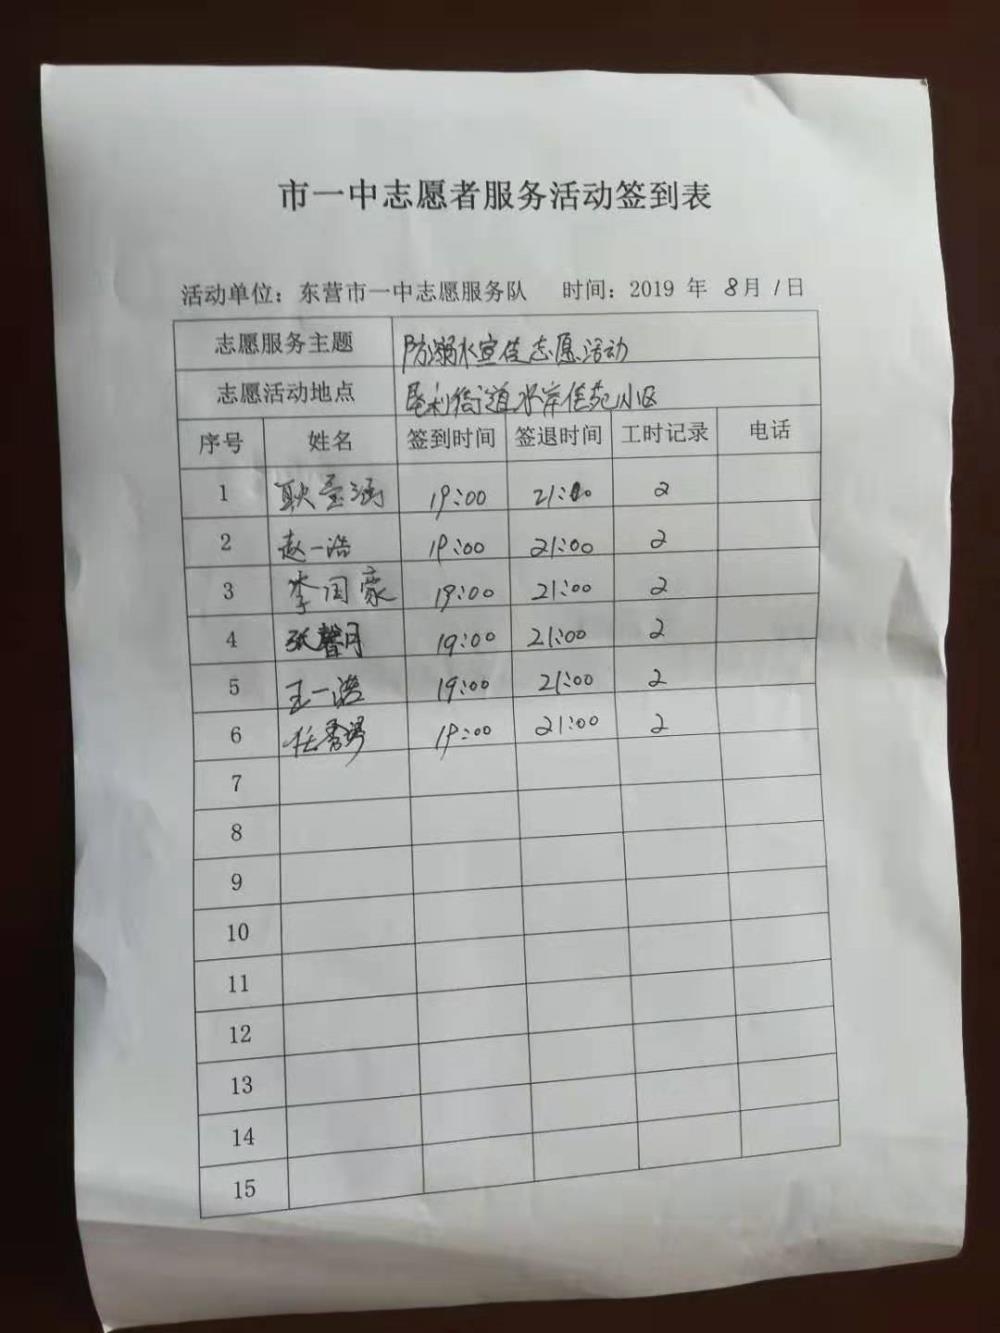 市一中志愿者服务活动签到表
活动单位：东营市一中志愿服务队 时间：2019 年 8月 1日
志愿服务主题 防溺水宣传志愿活动
志愿活动地点 垦利街道水岸佳苑小区
序号 姓名 签到时间 签退时间 工时记录 电话
1 耿 涵 19:00 21:00 2
2 赵一浩 19:00 21:00 2
3 李国豪 19:00 21:00 2
4 张馨月 19:00 21:00 2
5 王一浩 19:00 21:00 2
6 任 19:00 21:00 2
7
8
9
10
11
12
13
14
15